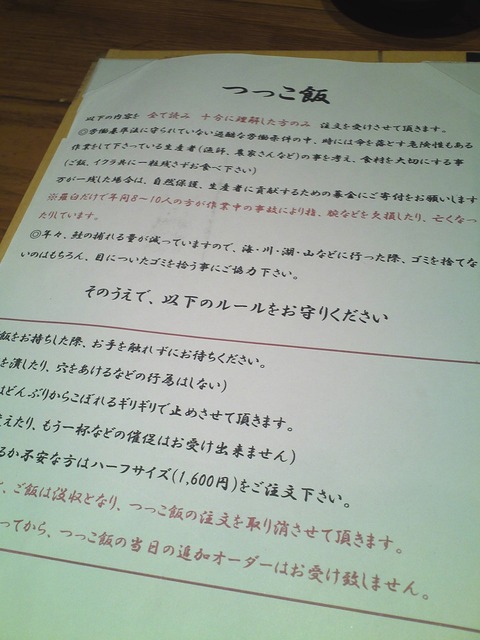 つっこ飯
以下の内容を 全て読み 十分に理解した方のみ 注文を受けさせて頂きます。
◎労働基準法に守られていない過酷な労働条件の中、時には命を落とす危険性もある
作業をして下さっている生産者(漁師、農家さんなど)の事を考え、食材を大切にする事
(ご飯、イクラ共に一粒残さずお食べ下さい)
万が一残した場合は、自然保護、生産者に貢献するための募金にご寄付をお願いします
※羅臼だけで年間8~10人の方が作業中の事故により指、腕などを欠損したり、亡くなっ
たりしています。
◎年々、鮭の捕れる量が減っていますので、海・川・湖・山などに行った際、ゴミを捨てな
いのはもちろん、目についたゴミを拾う事にご協力下さい。
そのうえで、以下のルールをお守りください
飯をお持ちした際、お手を触れずにお待ちください。
を潰したり、穴をあけるなどの行為はしない)
はどんぶりからこぼれるギリギリで止めさせて頂きます。
えたり、もう一杯などの催促はお受け出来ません)
るか不安な方はハーフサイズ(1,600円)をご注文下さい。
、ご飯は没収となり、つっこ飯の注文を取り消させて頂きます。
ってから、つっこ飯の当日の追加オーダーはお受け致しません。